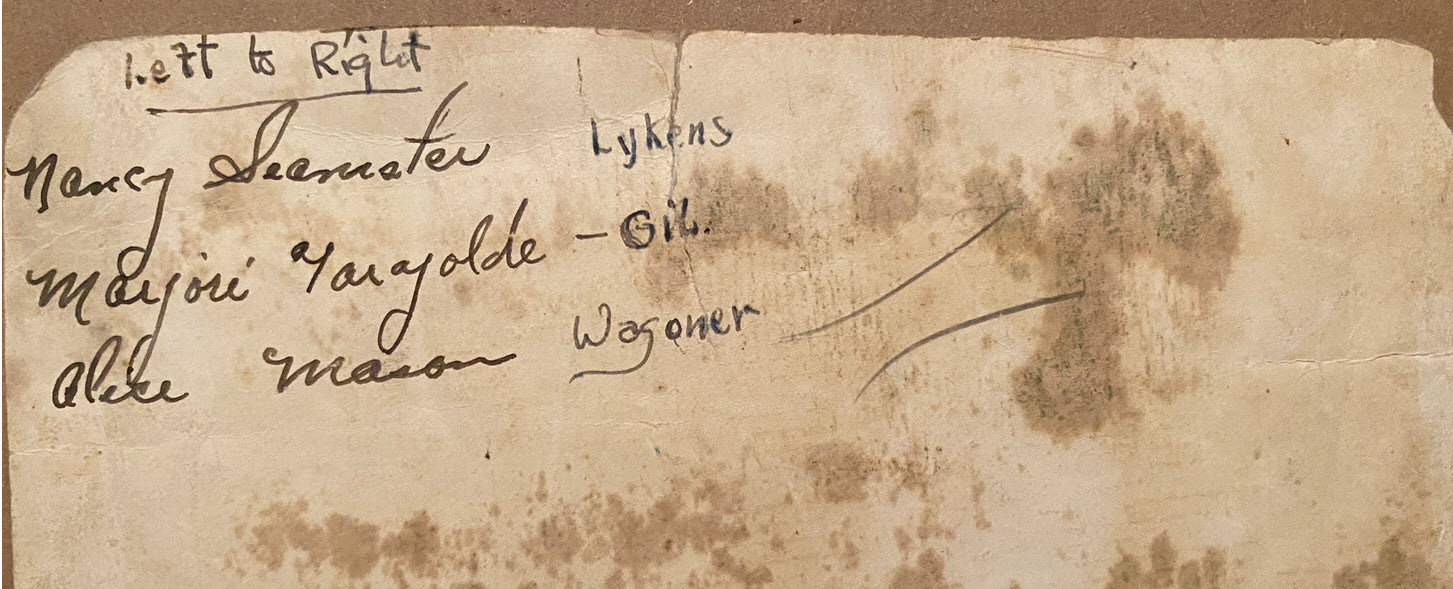 Left to Right
Nancy Seamster Lykens
Marjorie - Gil.
Alice Mason Wagoner